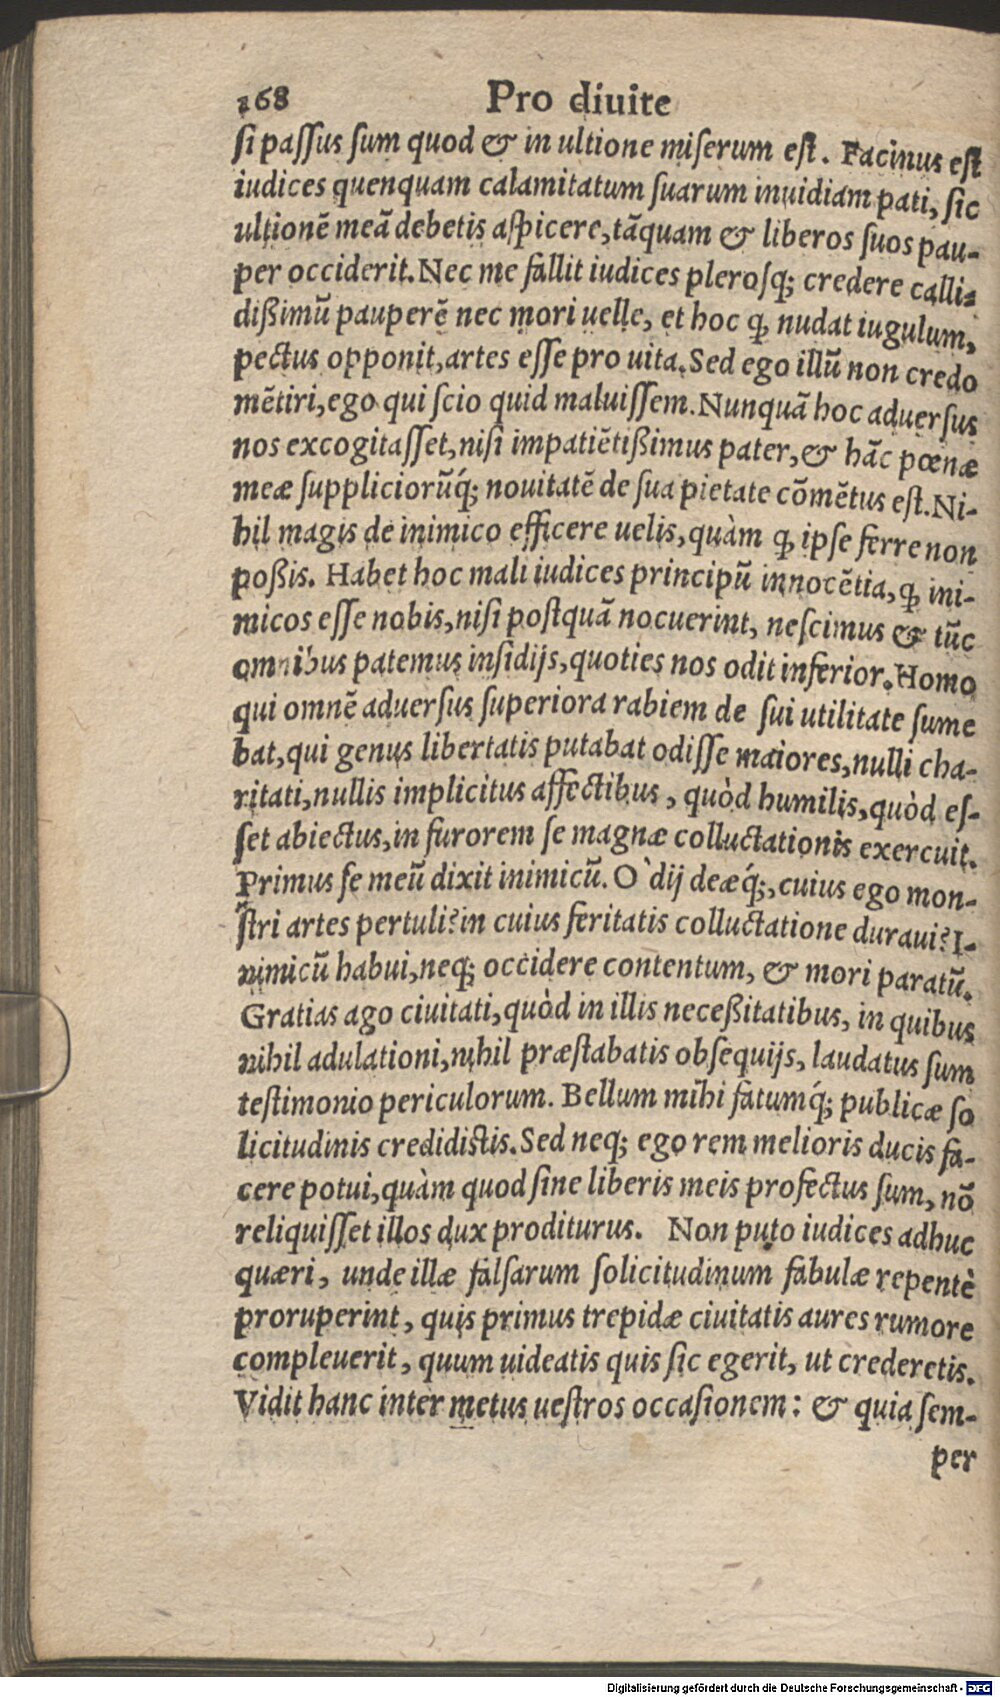 168 Pro diuite
si passus sum quod & in ultione miserum est. Facinus est
iudices quenquam calamitatum suarum inuidiam pati, sic
ultionẽ meã debetis aspicere, tãquam & liberos suos pau-
per occiderit. Nec me fallit iudices plerosq; credere calli-
dißimũ pauperẽ nec mori uelle, et hoc ꝙ nudat iugulum,
pectus opponit, artes esse pro uita. Sed ego illũ non credo
mẽtiri, ego qui scio quid maluissem. Nunquã hoc aduersus
nos excogitasset, nisi impatiẽtißimus pater, & hãc pœnæ
meæ suppliciorũq́; nouitatẽ de sua pietate cõmẽtus est. Ni-
hil magis de inimico efficere uelis, quàm ꝙ ipse ferre non
poßis. Habet hoc mali iudices principũ innocẽtia, ꝙ ini-
micos esse nobis, nisi postquã nocuerint, nescimus & tũc
omnibus patemus insidijs, quoties nos odit inferior. Homo
qui omnẽ aduersus superiora rabiem de sui utilitate sume
bat, qui genus libertatis putabat odisse maiores, nulli cha-
ritati, nullis implicitus affectibus, quòd humilis, quòd es-
set abiectus, in furorem se magnæ colluctationis exercuit.
Primus se meũ dixit inimicũ. O` dij deæq́;, cuius ego mon-
stri artes pertuli? in cuius feritatis colluctatione duraui? I-
nimicũ habui, neq; occidere contentum, & mori paratũ.
Gratias ago ciuitati, quòd in illis neceßitatibus, in quibus
nihil adulationi, nihil præstabatis obsequijs, laudatus sum
testimonio periculorum. Bellum mihi fatumq́; publicæ so
licitudinis credidistis. Sed neq; ego rem melioris ducis fa-
cere potui, quàm quod sine liberis meis profectus sum, nõ
reliquisset illos dux proditurus. Non puto iudices adhuc
quæri, unde illæ falsarum solicitudinum fabulæ repentè
proruperint, quis primus trepidæ ciuitatis aures rumore
compleuerit, quum uideatis quis sic egerit, ut crederetis.
Vidit hanc inter metus uestros occasionem: & quia sem-
per
Digitalisierung gefördert durch die Deutsche Forschungsgemeinschaft - DFG